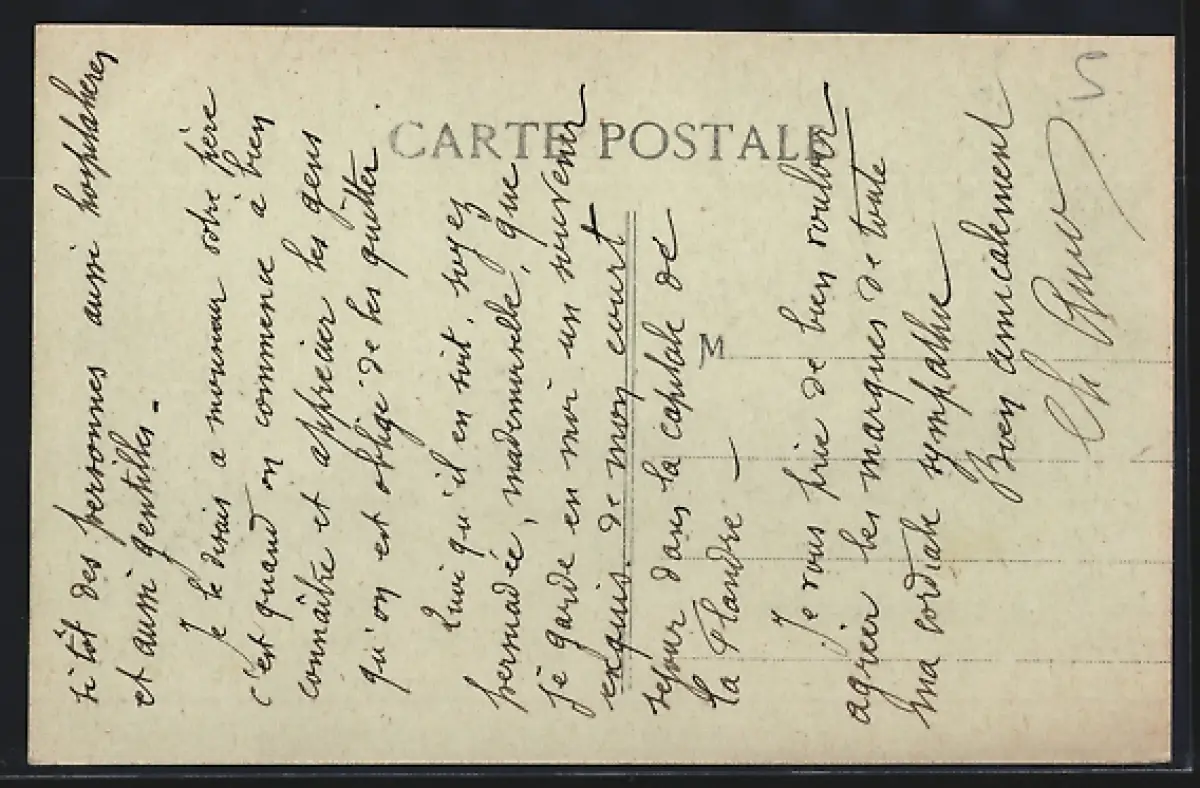 CARTE POSTALE
M
si tôt des personnes aussi hospitalières
et aussi gentilles. -
Je le disais a monsieur votre père
c'est quand on commence à bien
connaître et apprécier les gens
qu'on est obligé de les quitter.
Quoi qu'il en soit, soyez
persuadée, mademoiselle, que
je garde en moi un souvenir
exquis de mon court
séjour dans la capitale de
la Flandre —
Je vous prie de bien vouloir
agréer les marques de toute
ma cordiale sympathie
Bien amicalement
Ch